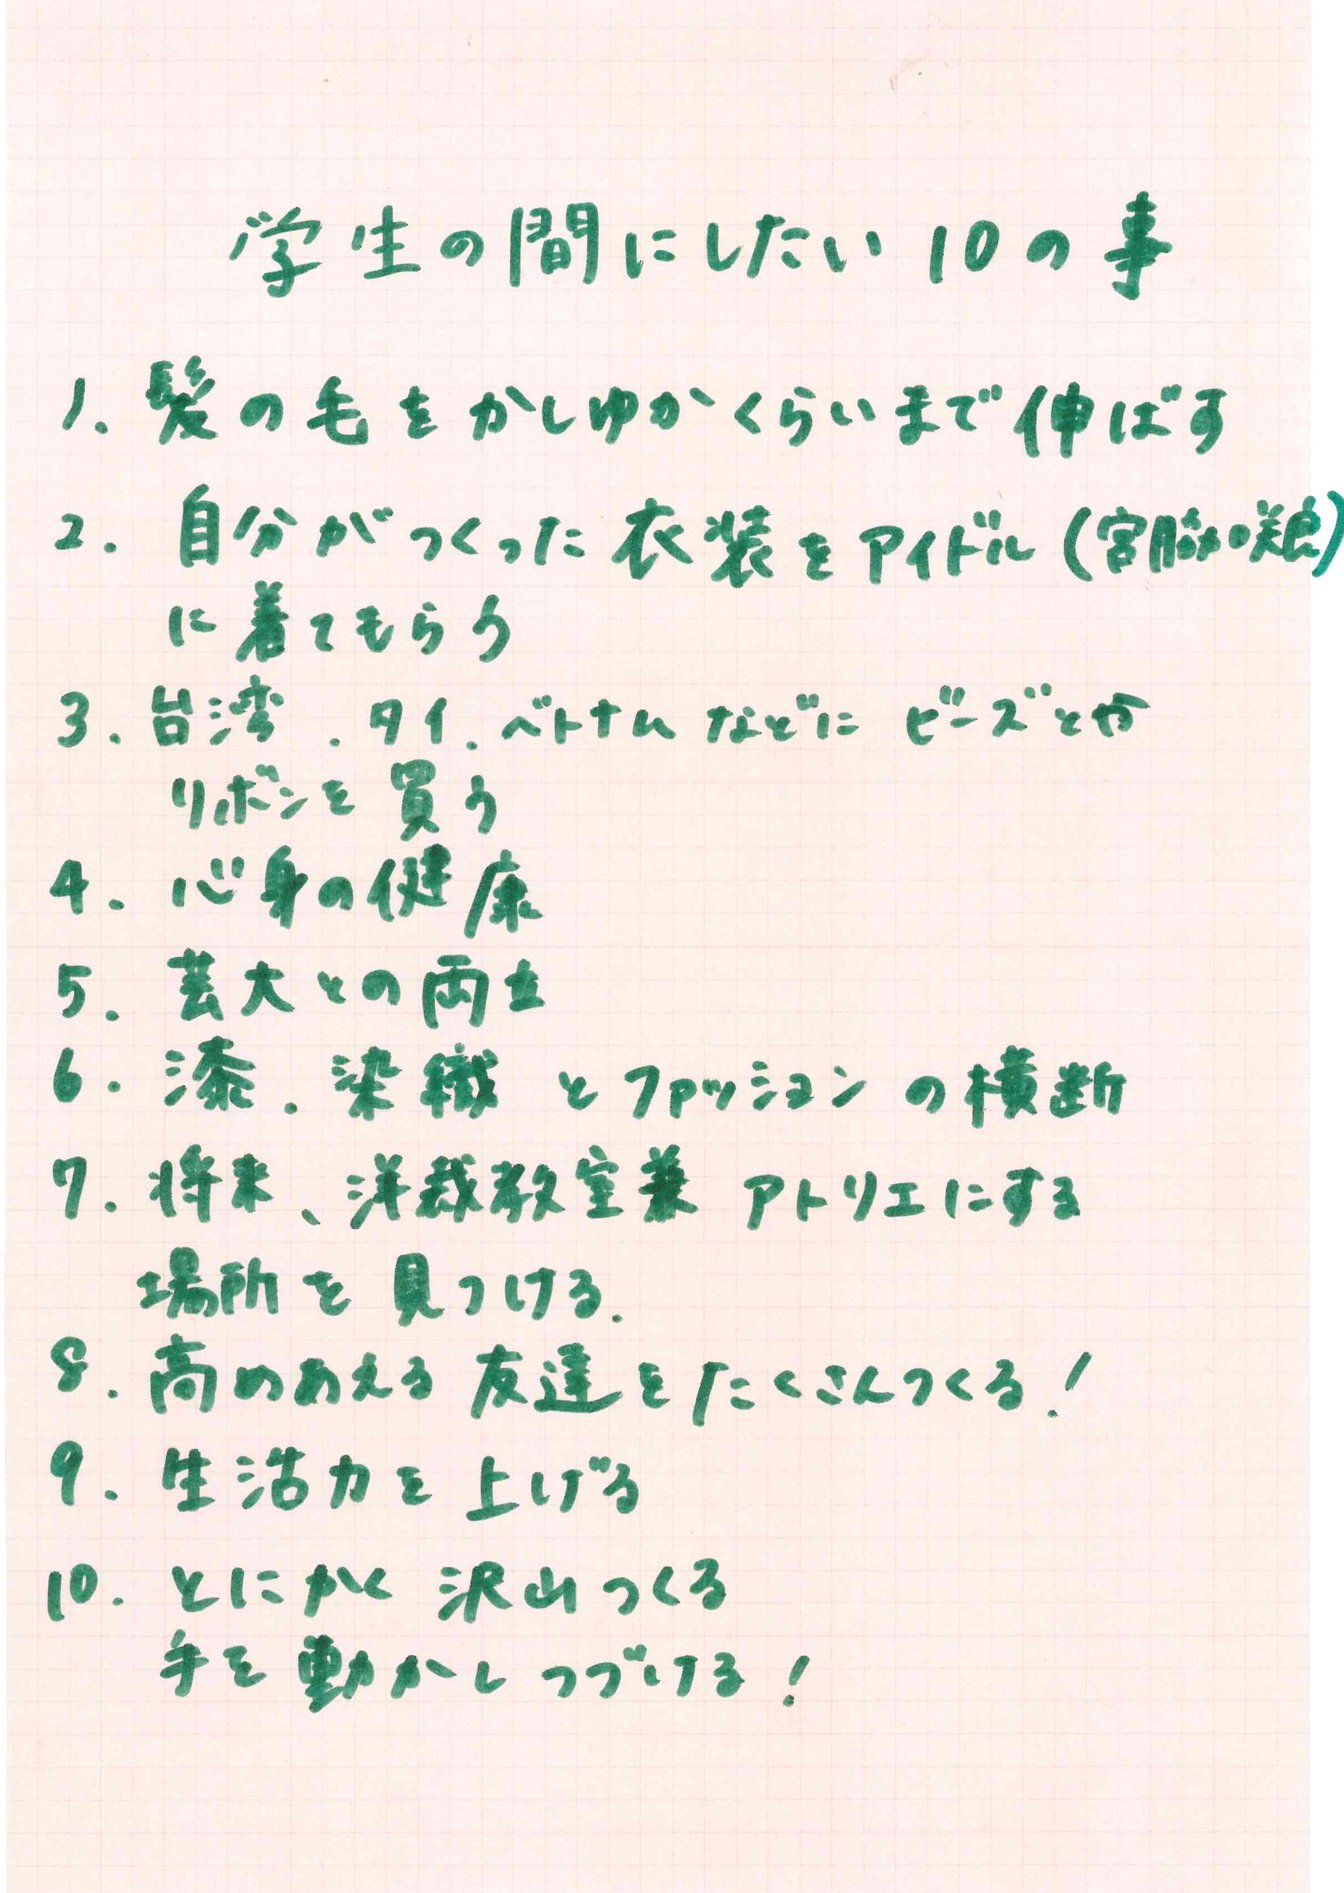 学生の間にしたい10の事
1. 髪の毛をかしゆかくらいまで伸ばす
2. 自分がつくった衣装をアイドル(宮脇咲良)
に着てもらう
3. 台湾、タイ、ベトナムなどにビーズとや
リボンを買う
4. 心身の健康
5. 芸大との両立
6. 漆、染織とファッションの横断
7. 将来、洋裁教室兼アトリエにする
場所を見つける.
8. 高めあえる友達をたくさんつくる!
9. 生活力を上げる
10. とにかく沢山つくる
手を動かしつづける!